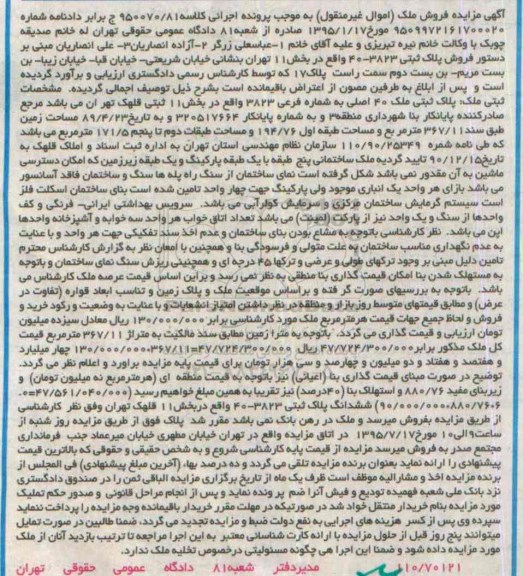 آگهی مزایده فروش ملک (اموال غیرمنقول) به موجب پرونده اجرائی کلاسه۹۵۰۰۷۰/۸۱ ج برابر دادنامه شماره
۹۵۰۹۹۷۲۱۶۱۷۰۰۰۲۰ مورخ۱۳۹۵/۱/۱۷ صادره از شعبه۸۱ دادگاه عمومی حقوقی تهران له خانم صدیقه
چوبک با وکالت خانم نیره تبریزی و علیه آقای خانم ۱-عباسعلی زرگر ۲-آزاده انصاریان۳- علی انصاریان مبنی بر
دستور فروش پلاک ثبتی ۳۸۲۳-۴۰ واقع در بخش۱۱ تهران بنشانی خیابان شریعتی- خیابان قبا- خیابان زیبا- بن
بست مریم- بن بست دوم سمت راست پلاک۱۷ که توسط کارشناس رسمی دادگستری ارزیابی و برآورد گردیده
است و پس از ابلاغ به طرفین مصون از اعتراض باقیمانده است بشرح ذیل توصیف اجمالی گردیده. مشخصات
ثبتی ملک: پلاک ثبتی ملک ۴۰ اصلی به شماره فرعی ۳۸۲۳ واقع در بخش۱۱ ثبتی قلهک تهران می باشد مرجع
صادرکننده پایانکار بنا شهرداری منطقه۳ و به شماره پایانکار ۳۲۰۵۱۷۶۶۴ و به تاریخ۸۹/۴/۲۳ مساحت زمین
طبق سند ۳۶۷/۱۱ مترمربع و مساحت طبقه اول ۱۹۴/۷۶ و مساحت طبقات دوم تا پنجم ۱۷۱/۵ مترمربع می باشد
که طی نامه شماره ۱۱۰/۹۰/۲۵۳۴۹ سازمان نظام مهندسی استان تهران به اداره ثبت اسناد و املاک قلهک به
تاریخ۹۰/۱۲/۱۵ تایید گردیده ملک ساختمانی پنج طبقه با یک طبقه پارکینگ و یک طبقه زیرزمین که امکان دسترسی
ماشین به آن مقدور نمی باشد شکل گرفته است نمای ساختمان از سنگ راه پله ها سنگ و ساختمان فاقد آسانسور
می باشد بازای هر واحد یک انباری موجود ولی پارکینگ جهت چهار واحد تامین شده است بنای ساختمان اسکلت فلز
است سیستم گرمایش ساختمان مرکزی و سرمایش کولرآبی می باشد. سرویس بهداشتی ایرانی- فرنگی و کف
واحدها از سنگ و یک واحد نیز از پارکت (لمینت) می باشد تعداد اتاق خواب هر واحد سه خوابه و آشپزخانه واحدها
اپن می باشد. نظر کارشناسی باتوجه به مشاع بودن بنای ساختمان و عدم اخذ سند تفکیکی جهت هر واحد و با عنایت
به عدم نگهداری مناسب ساختمان به علت متولی و فرسودگی بنا و همچنین با امعان نظر به گزارش کارشناس محترم
تامین دلیل مبنی بر وجود ترکهای طولی و عرضی و ترکها ۴۵ درجه ای و همچنین ریزش سنگ نمای ساختمان و باتوجه
به مستهلک شدن بنا امکان قیمت گذاری بنا منطقی به نظر نمی رسد و براین اساس قیمت عرصه ملک کارشناس می
باشد. باتوجه به بررسیهای صورت گرفته و براساس موقعیت ملک و پلاک زمین و تناسب ابعاد قواره (تفاوت در
عرض) و مطابق قیمتهای متوسط روز بازار و منطقه در نظر داشتن امتیاز انشعابات و با عنایت به وضعیت و رکود خرید و
فروش و لحاظ جمیع جهات قیمت هر مترمربع ملک مورد کارشناسی برابر ۱۳۰/۰۰۰/۰۰۰ ریال معادل سیزده میلیون
تومان ارزیابی و قیمت گذاری می گردد. باتوجه به متراژ زمین مطابق سند مالکیت به متراژ ۳۶۷/۱۱ مترمربع قیمت
کل ملک مذکور برابر۴۷/۷۲۴/۳۰۰/۰۰۰ ریال ۴۷/۷۲۴/۳۰۰/۰۰۰=۳۶۷/۱۱×۱۳۰/۰۰۰/۰۰۰ چهار میلیارد
و هفتصد و هفتاد و دو میلیون و چهارصد و سی هزار تومان برای قیمت پایه مزایده برآورد و اعلام نظر می گردد.
توضیح در صورت مبنای قیمت گذاری بنا (اعیانی) نیز باتوجه به قیمت منطقه ای (هرمترمربع نه میلیون تومان) و
زیربنای مفید ۸۸۰/۷۶ و استهلاک بنا (۴۰درصد) نیز تقریبا به همین مبلغ خواهیم رسید (۴۷/۵۶۱/۰۴۰/۰۰۰=۰/۵
۹۰/۰۰۰/۰۰۰×۸۸۰/۷۶×۰/۶) ششدانگ پلاک ثبتی ۳۸۲۳-۴۰ واقع دربخش۱۱ قلهک تهران وفق نظر کارشناسی
از طریق مزایده بفروش میرسد و ملک در رهن بانک نمی باشد مقرر شد پلاک فوق از طریق مزایده روز شنبه از
ساعت۹الی۱۰ مورخ۱۳۹۵/۷/۱۷ در اتاق مزایده واقع در تهران خیابان مطهری خیابان میرعماد جنب فرمانداری
مجتمع صدر به فروش میرسد مزایده از قیمت پایه کارشناسی شروع و به شخص حقیقی و حقوقی که بالاترین قیمت
پیشنهادی را ارائه نماید بعنوان برنده مزایده تلقی می گردد و ده درصد بها، (آخرین مبلغ پیشنهادی) فی المجلس از
برنده مزایده اخذ و مشارالیه موظف است ظرف یک ماه از تاریخ برگزاری مزایده الباقی ثمن را در صندوق دادگستری
نزد بانک ملی شعبه فهمیده تودیع و فیش آنرا ضم پرونده نماید و پس از انجام مراحل قانونی و صدور حکم تملیک
مورد مزایده بنام خریدار منتقل خواهد شد در صورتیکه در مهلت مقرر خریدار باقیمانده وجه مزایده را پرداخت ننماید
سپرده وی پس از کسر هزینه های اجرایی به نفع دولت ضبط و مزایده تجدید می گردد، ضمنا طالبین در صورت تمایل
میتوانند پنج روز قبل از حلول مزایده با ارائه کارت شناسائی معتبر به این اجرا مراجعه تا ترتیب بازدید آنان از ملک
مورد مزایده داده شود و ضمنا این اجرا هی چگونه مسئولیتی درخصوص تخلیه ملک ندارد.
۱۱۰/۷۰۱۲۱ مدیردفتر شعبه۸۱ دادگاه عمومی حقوقی تهران